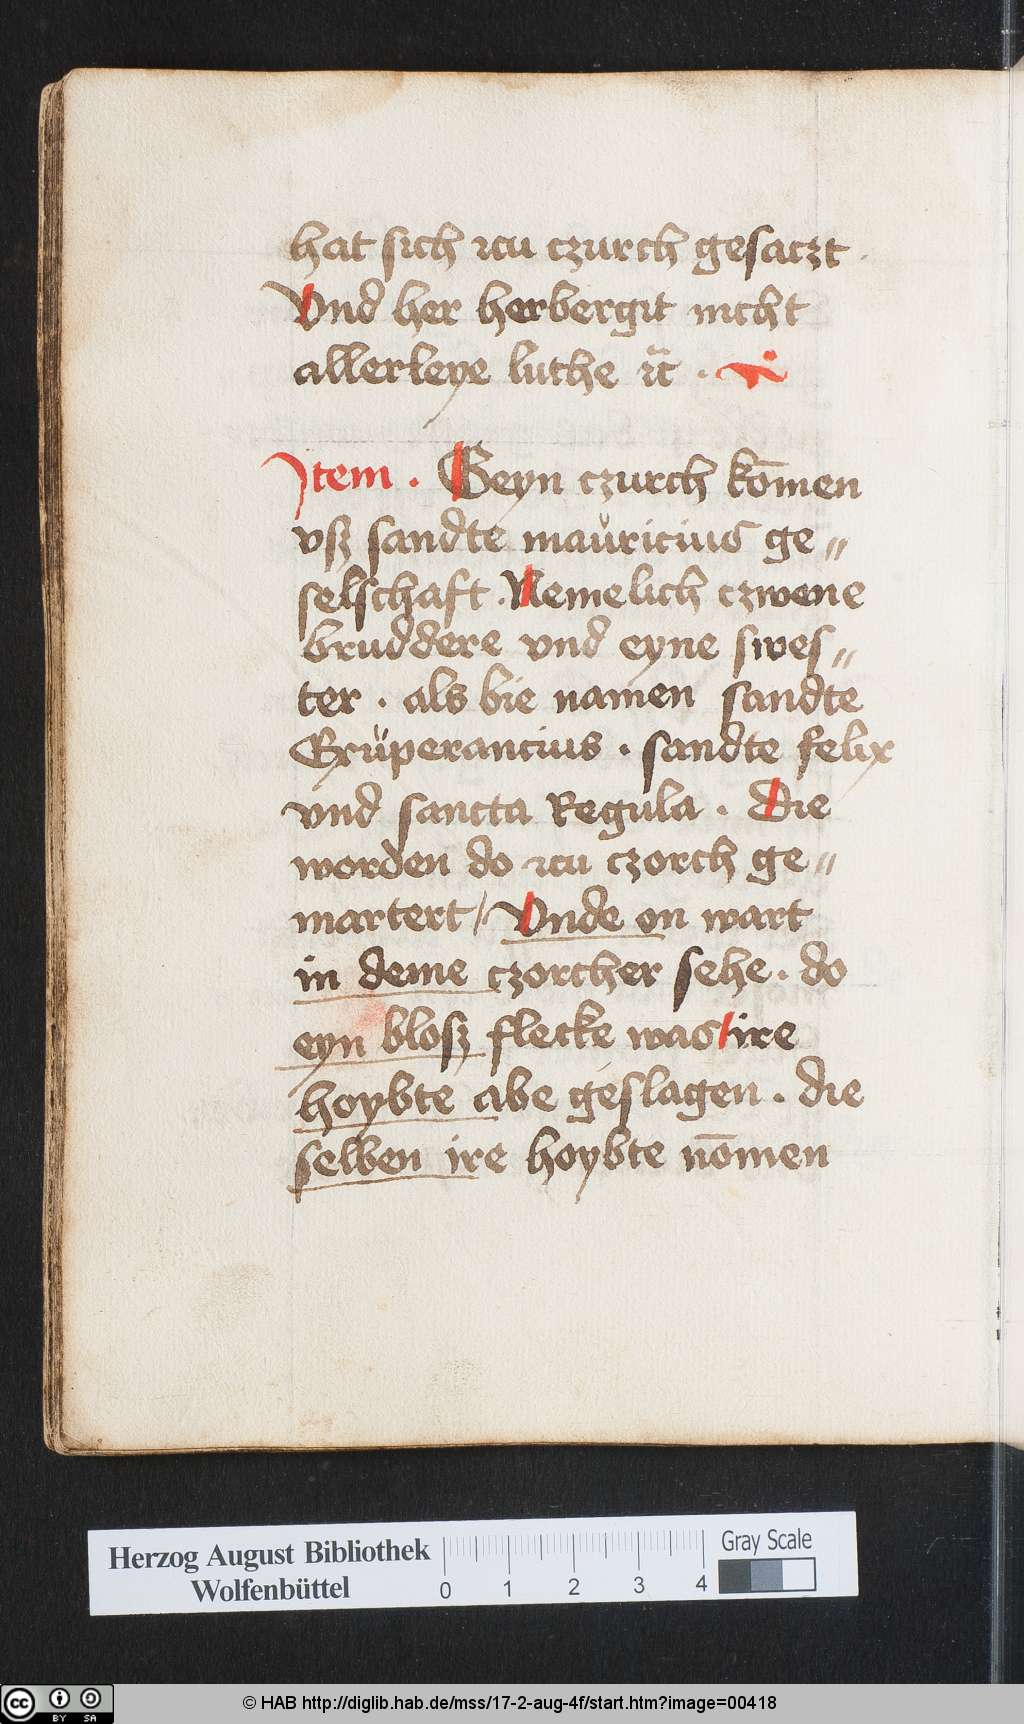 hat sich zcu czurch gesaczt .
Vnd her herbergit nicht
allerleye luthe ꝛc̃ .
Item . Geyn czurch kōmen
vsz sandte maůricius ge〃
selschaft . Nemelich czwene
bruddere vnd eyne swes〃
ter . als bie namen sandte
Exüperancius . sandte felix
vnd sancta Regula . Die
worden do zcu czorch ge〃
martert / Vnde on wart
in deme czorcher sehe . do
eyn blosz flecke was / ire
hoybte abe geslagen . die
selben ire hoybte nōmen
Herzog August Bibliothek
Wolfenbüttel
0 1 2 3 4
Gray Scale
cc BY SA
© HAB http://diglib.hab.de/mss/17-2-aug-4f/start.htm?image=00418